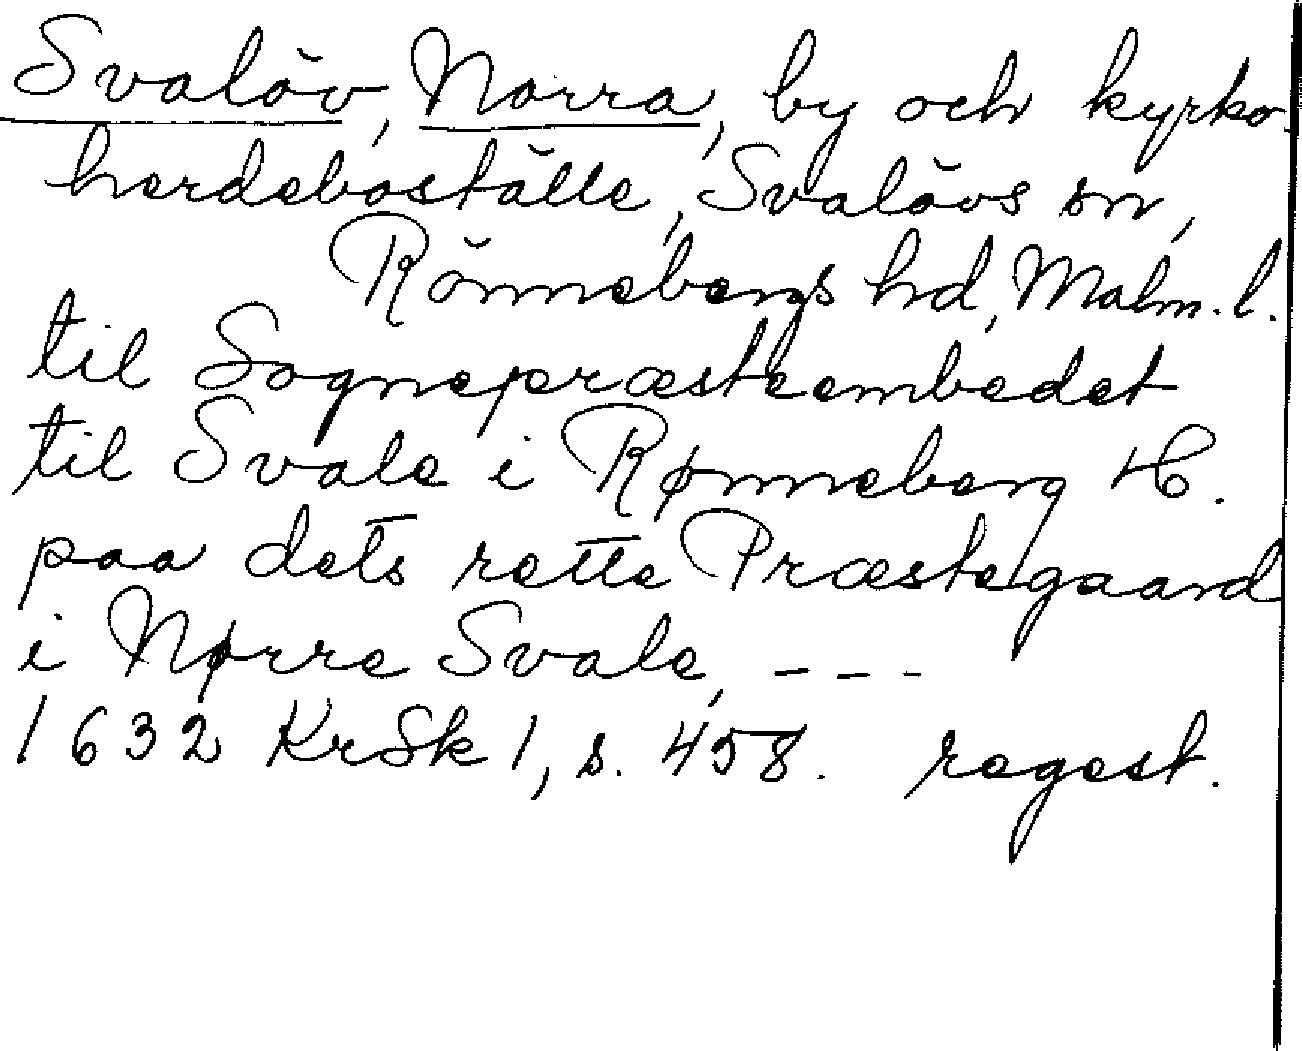 Svalöv, Norra, by och kyrko-
herdeboställe, Svalövs sn,
Rönnebergs hd, Malm. l.
til Sognepræsteembedet
til Svale i Rønneberg H.
paa dets rette Præstegaard
i Nørre Svale, - - -
1632 KrSk 1, s. 458. regest.